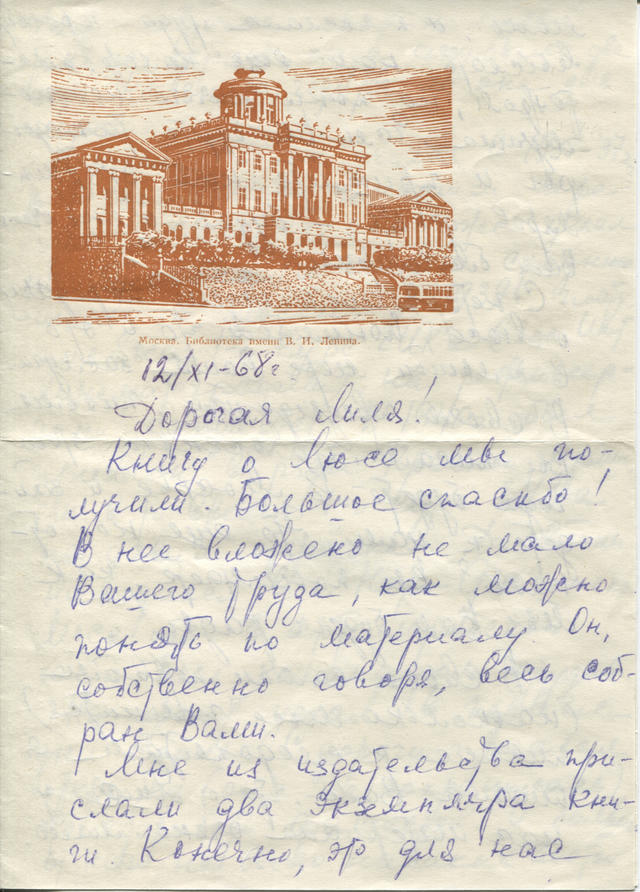 Москва. Библиотека имени В. И. Ленина.
12/XI-68 г.
Дорогая Лиля!
Книгу о Люсе мы по-
лучили. Большое спасибо!
В нее вложено не мало
Вашего труда, как можно
понять по материалу. Он,
собственно говоря, весь соб-
ран Вами.
Мне из издательства при-
слали два экземпляра кни-
ги. Конечно, это для нас